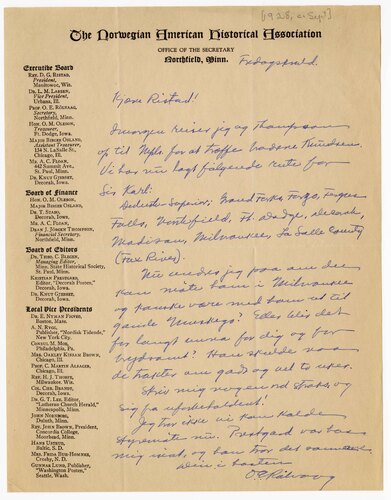 [1928, c. Sept]
The Norwegian American Historical Association
OFFICE OF THE SECRETARY
Northfield, Minn.
Executive Board
REV. D. G. RISTAD,
President,
Manitowoc, Wis.
DR. L. M. LARSEN,
Vice President,
Urbana, Ill.
PROF. O. E. RÖLVAAG,
Secretary,
Northfield, Minn.
HON. O. M. OLESON,
Treasurer,
Ft. Dodge, Iowa.
MAJOR BIRGER OSLAND,
Assistant Treasurer,
134 N. LaSalle St.
Chicago, Ill.
MR. A. C. FLOAN,
442 Summit Ave.,
St. Paul, Minn.
DR. KNUT GJERSET,
Decorah, Iowa.
Board of Finance
HON. O. M. OLESON,
MAJOR BIRGER OSLAND,
DR. T. STABO,
Decorah, Iowa,
MR. A. C. FLOAN,
DEAN J. JÖRGEN THOMPSON,
Financial Secretary,
Northfield, Minn.
Board of Editors
DR. THEO. C. BLEGEN,
Managing Editor,
Minn. State Historical Society,
St. Paul, Minn.
KRISTIAN PRESTGARD,
Editor, "Decorah Posten,"
Decorah, Iowa,
DR. KNUT GJERSET,
Decorah, Iowa.
Local Vice Presidents
DR. E. NYMAN FIGVED,
Boston, Mass.
A. N. RYGG,
Publisher, "Nordisk Tidende,"
New York City.
CHRISTI. M. MOE,
Philadelphia, Pa.
MRS. OAKLEY KISSAM BROWN,
Chicago, Ill.
PROF. C. MARTIN ALSAGER,
Chicago, Ill.
REV. H. J. THORPE,
Milwaukee, Wis.
COL. CHR. BRANDT,
Decorah, Iowa,
DR. G. T. LEE, EDITOR
"Lutheran Church Herald,"
Minneapolis, Minn.
JOHN NORBORG,
Duluth, Minn.
REV. JOHN BROWN, PRESIDENT,
Concordia College,
Moorhead, Minn.
HANS USTRUD,
Baltic, S. D.
MRS. FRIDA BUE-HOMNES,
Crosby, N. D.
GUNNAR LUND, PUBLISHER,
"Washington Posten,"
Seattle, Wash.
Fredagskveld.
Kjære Ristad!
Imorgen reiser jeg og Thompson
op til Mpls. for at træffe
Vi har nu lagt følgende rute for
Sir Karl:
Duluth-Superior, Grand Forks, Fargo, Fergus
Falls, Northfield, Ft. Dodge, Decorah,
Madison, Milwaukee, La Salle County
(Fox River).
Nu undres jeg paa om du
kan møte ham i Milwaukee
og kanske være med ham ut til
gamle "Muskego"? Eller blir det
for langt unna for dig og for
Han skulde nok
de hatter om gadd og vel to uker.
Skriv mig nogen ord straks, og
sig fra uforbeholdent!
Jeg for ikke vi kan kalde
styremøte nu. Prestgard var hos
mig igaar, og han tror det samme
O E Rølvaag